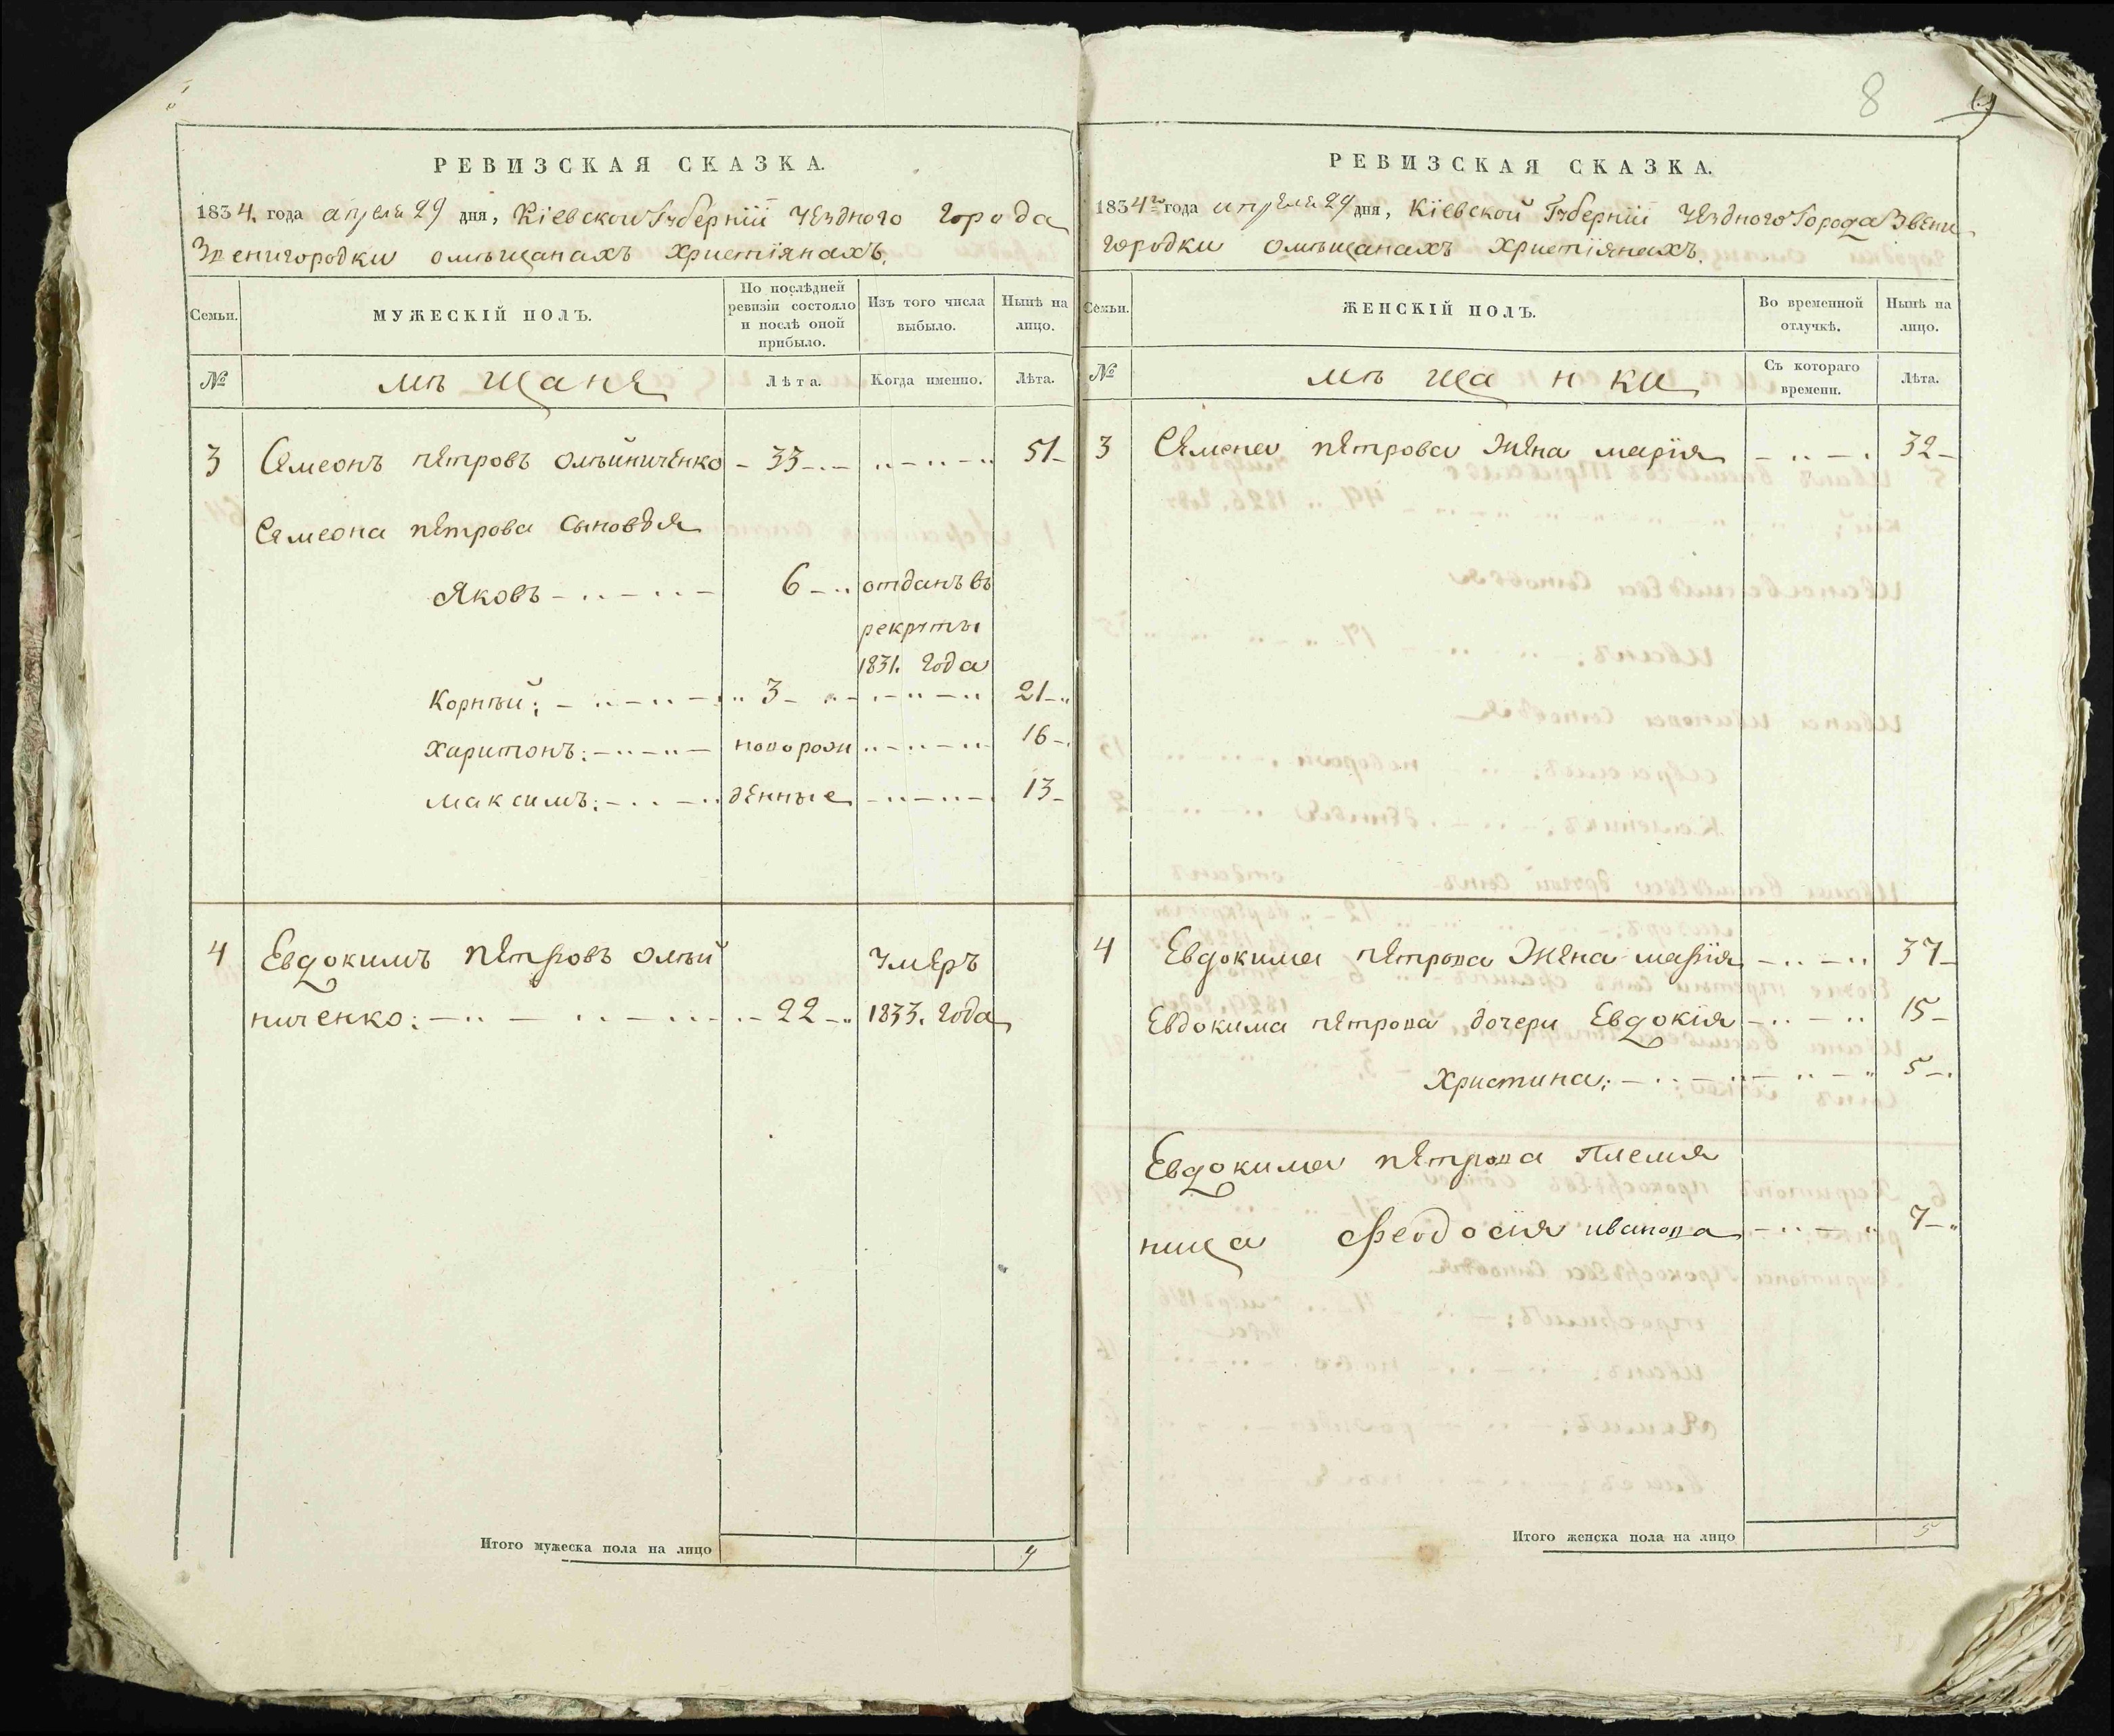 РЕВИЗСКАЯ СКАЗКА.
1834. года апреля 29 дня, Кіевской Губерніи Уезднаго Города
Звенигородки омѣщанахъ Христіянахъ.
Семьи.
МУЖЕСКІЙ ПОЛЪ.
По послѣдней ревизіи состояло и послѣ оной прибыло.
Изъ того числа выбыло.
Нынѣ на лицо.
№
мѣщане
Лѣта.
Когда именно.
Лѣта.
3 Семеонъ петровъ олѣйниченко 33 51
Семеона петрова сыновья
Яковъ 6 отданъ въ
рекруты
1831. года
Корнѣй: 3 21
Харитонъ: новорож 16
Максимъ: денные 13
4 Евдокимъ петровъ олѣй умеръ
ниченко: 22 1833. года
Итого мужеска пола на лицо 4
8
РЕВИЗСКАЯ СКАЗКА.
1834го года апреля 29 дня, Кіевской Губерніи Уезднаго Города Звени
городки омѣщанахъ Христіянахъ.
Семьи.
ЖЕНСКІЙ ПОЛЪ.
Во временной отлучкѣ.
Нынѣ на лицо.
№
мѣщанки
Съ котораго времени.
Лѣта.
3 Семена петрова жена марія 32
4 Евдокима петрова жена марія 37
Евдокима петрова дочери Евдокія 15
Христина: 5
Евдокима петрова племя
ница Феодосия иванова 7
Итого женска пола на лицо 5